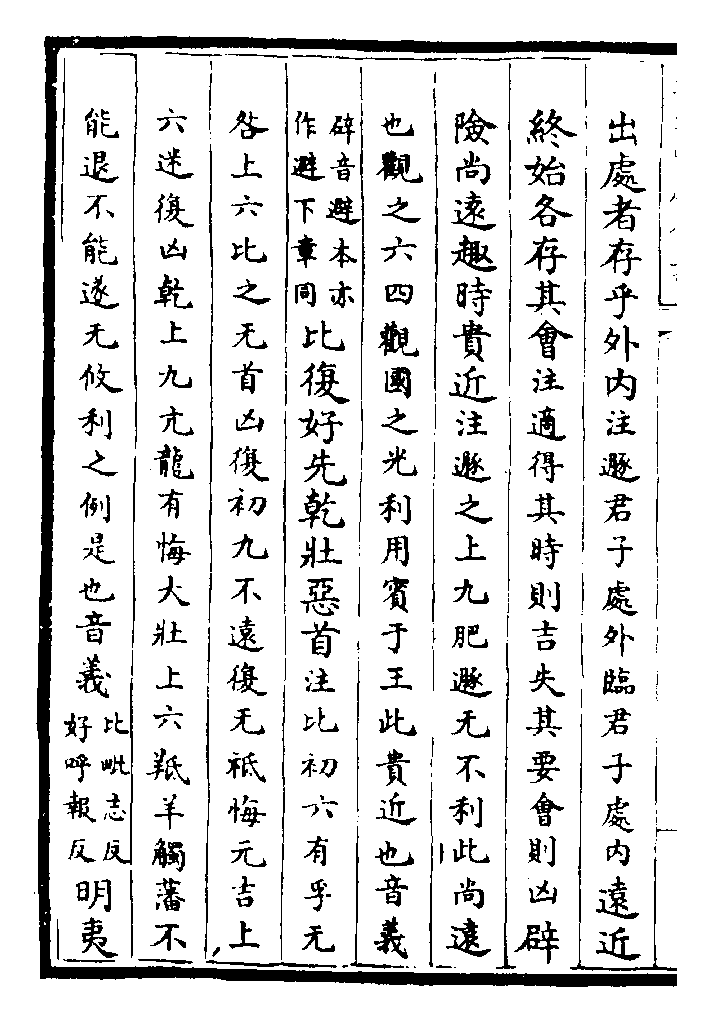 出處者存乎外內注遯君子處外臨君子處內遠近
終始各存其會注適得其時則吉失其要會則凶辟
險尚遠趣時貴近注遯之上九肥遯无不利此尚遠
也觀之六四觀國之光利用賓于王此貴近也音義
辟音避本亦
作避下章同
比復好先乾壯惡首注比初六有孚无
咎上六比之无首凶復初九不遠復无祗悔元吉上
六迷復凶乾上九亢龍有悔大壯上六羝羊觸藩不
能退不能遂无攸利之例是也音義
比毗志反
好呼報反
明夷